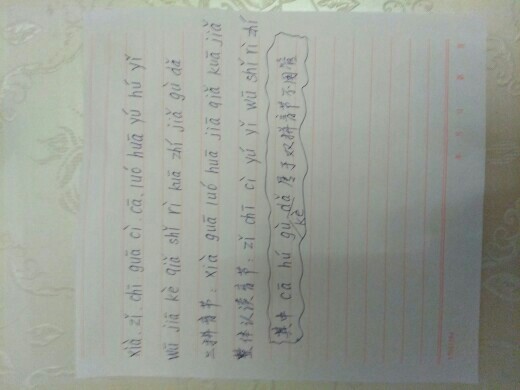 xià. zǐ. chī guā cì cā. luó huā yú hú yǐ
wū jiā kè qiǎ shǐ rì kuā zhí jiǎ gù dǎ
三拼音节：xià guā luó huā jiā qiǎ kuā jiǎ
整体认读音节：zǐ chī cì yú yǐ wū shǐ rì zhí
其中 cā hú gù dǎ 属于双拼音节不用管
kè